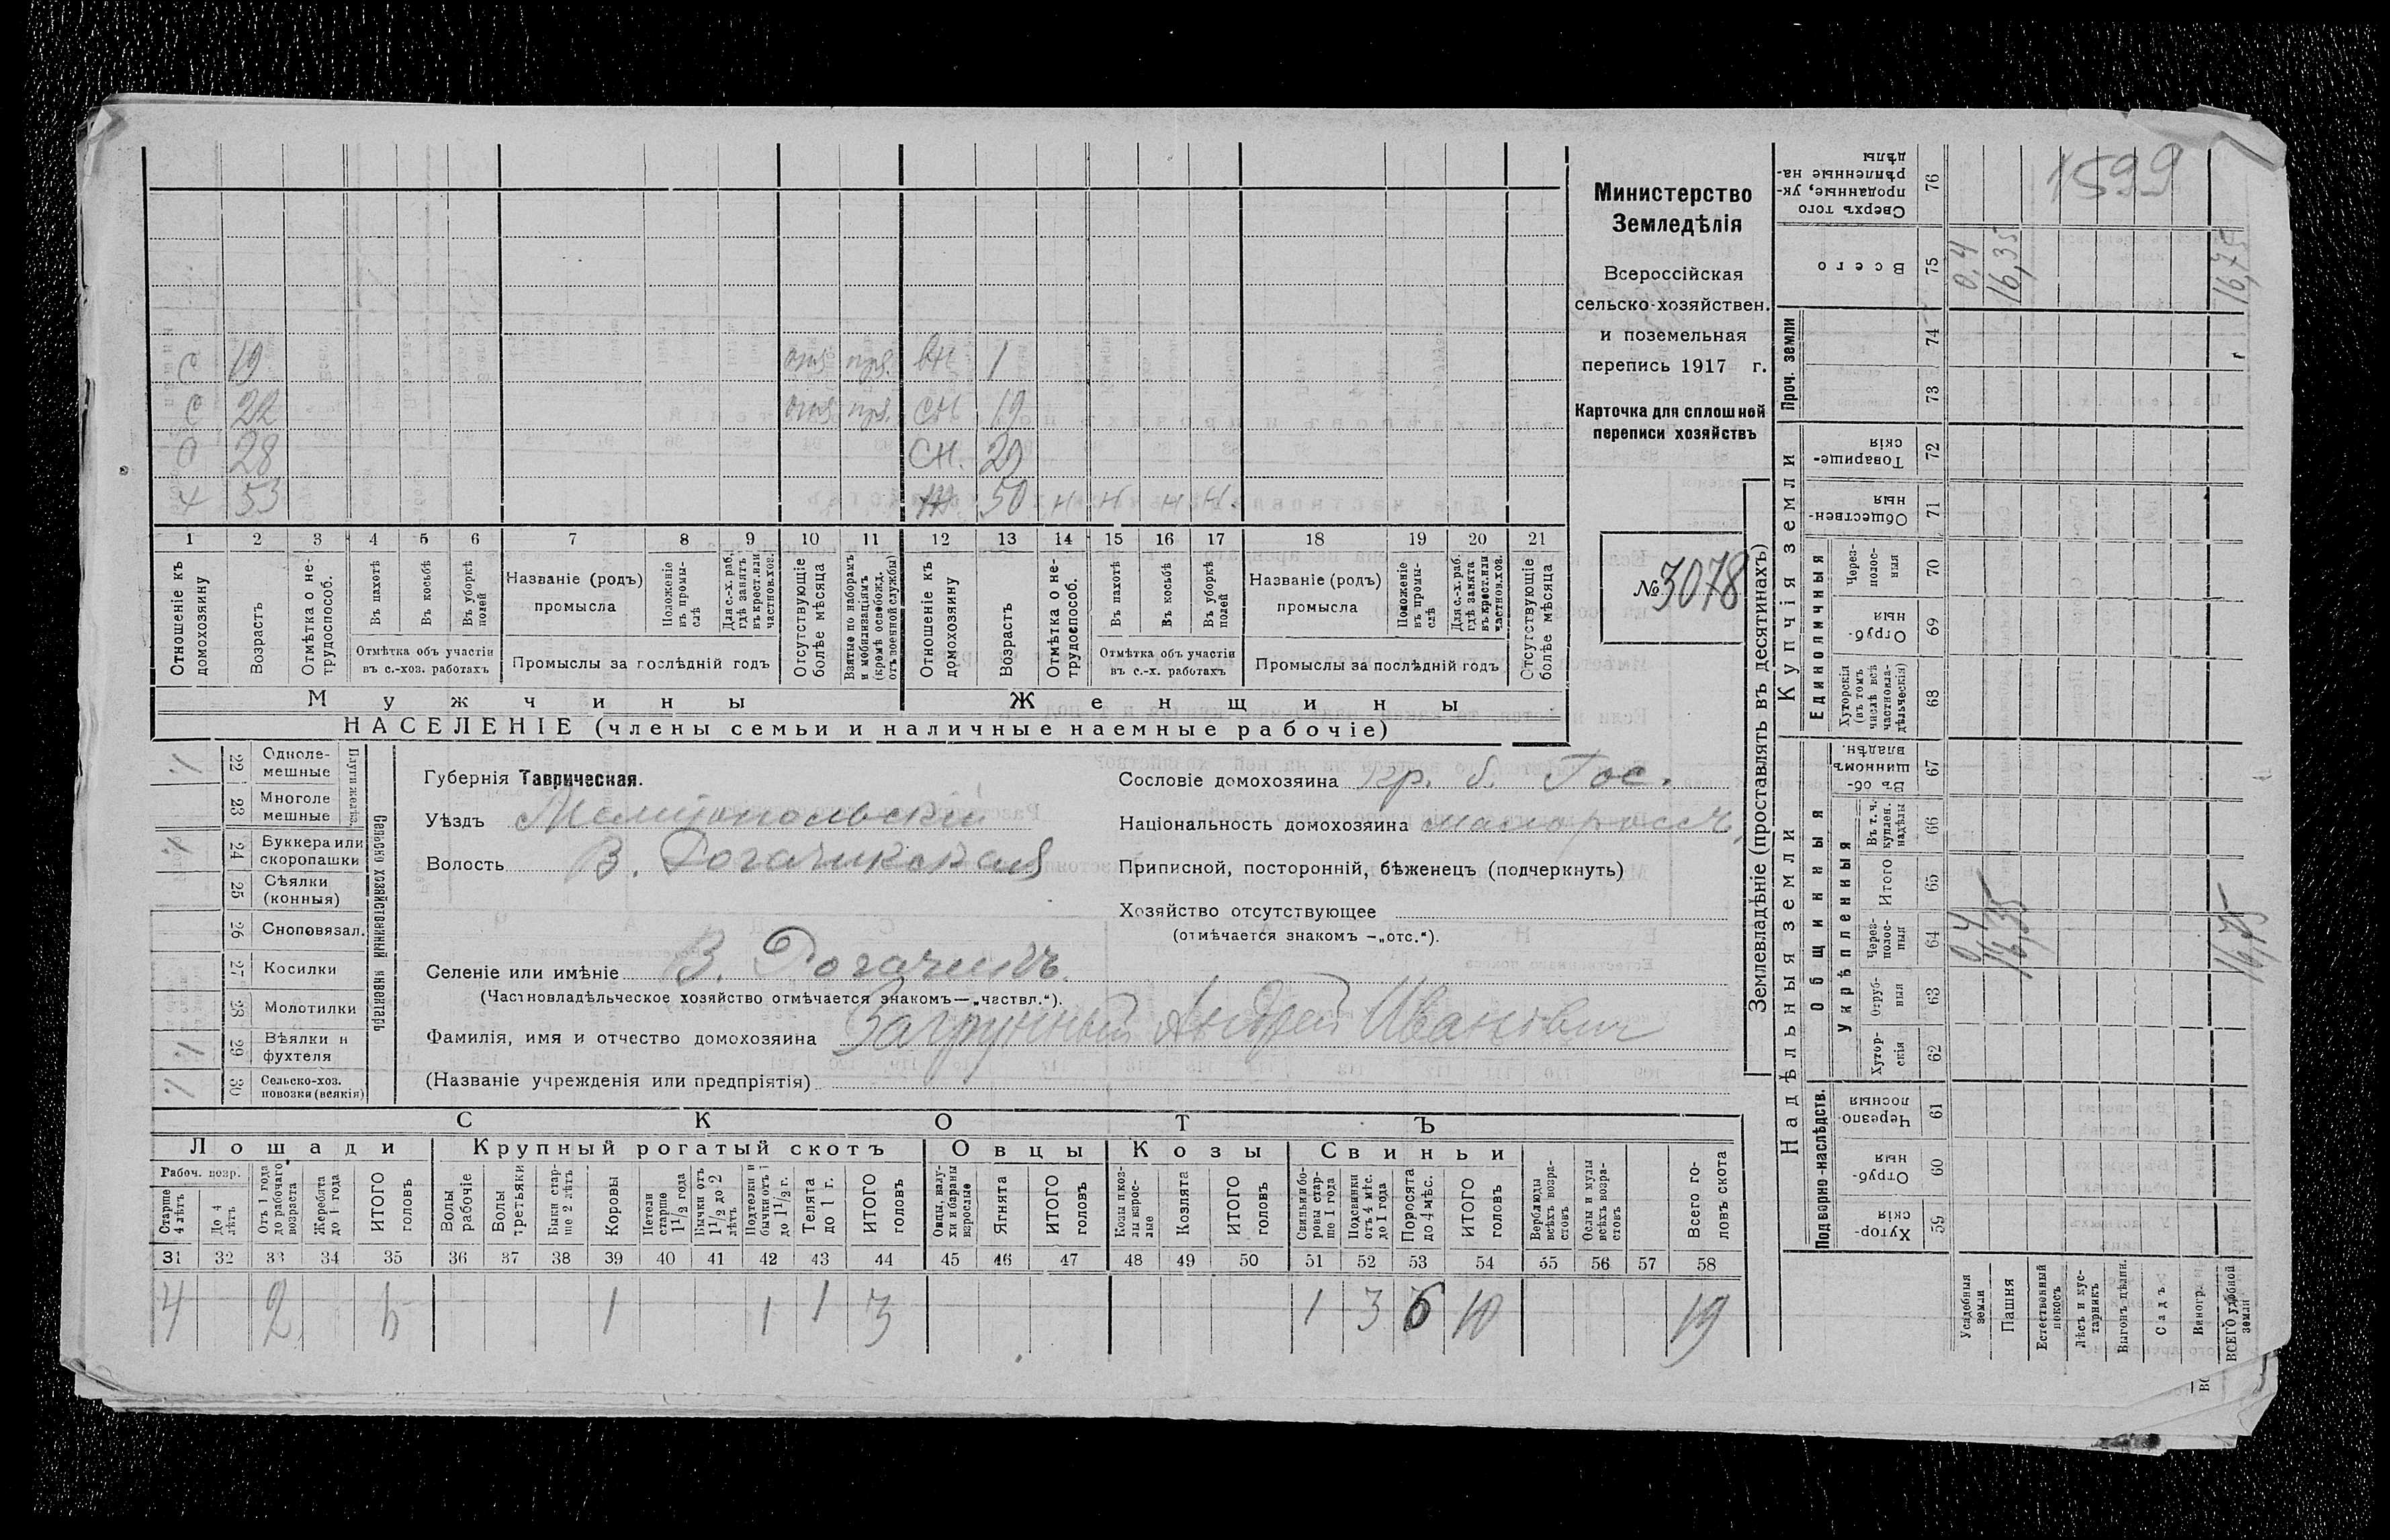 1599
Министерство
Земледѣлія
Всероссійская
сельско-хозяйствен.
и поземельная
перепись 1917 г.
Карточка для сплошной
переписи хозяйствъ
№ 3078
с 19 отс. пр. вн. 1
с 22 отс. пр. сн. 19
с 28 сн. 29
х 53 ж 50 н н н н
1 2 3 4 5 6 7 8 9 10 11 12 13 14 15 16 17 18 19 20 21
Отношеніе къ домохозяину
Возрастъ
Отмѣтка о не-трудоспособ.
Въ пахотѣ
Въ косьбѣ
Въ уборкѣ полей
Отмѣтка объ участіи въ с.-хоз. работахъ
Названіе (родъ) промысла
Положеніе въ промы-слѣ
Для с.-х. раб. гдѣ занятъ въ крест. или частнов. хоз.
Промыслы за послѣдній годъ
Отсутствующіе болѣе мѣсяца
Взятые по наборамъ и мобилизаціямъ (кромѣ освобожд. отъ военной службы)
Отношеніе къ домохозяину
Возрастъ
Отмѣтка о не-трудоспособ.
Въ пахотѣ
Въ косьбѣ
Въ уборкѣ полей
Отмѣтка объ участіи въ с.-х. работахъ
Названіе (родъ) промысла
Положеніе въ промы-слѣ
Для с.-х. раб. гдѣ занята въ крест. или частнов. хоз.
Промыслы за послѣдній годъ
Отсутствующіе болѣе мѣсяца
Мужчины Женщины
НАСЕЛЕНІЕ (члены семьи и наличные наемные рабочіе)
Сельско хозяйственный инвентарь
22 Однолемешные 1
23 Многолемешные
24 Буккера или скоропашки 1
25 Сѣялки (конныя)
26 Сноповязал.
27 Косилки
28 Молотилки
29 Вѣялки и фухтеля 1
30 Сельско-хоз. повозки (всякія) 1
Губернія Таврическая.
Уѣздъ Мелитопольскій
Волость В. Рогачикская
Селеніе или имѣніе В. Рогачикъ
(Частновладѣльческое хозяйство отмѣчается знакомъ—„частвл.“).
Сословіе домохозяина кр. б. Гос.
Національность домохозяина малоросс.
Приписной, посторонній, бѣженецъ (подчеркнуть)
Хозяйство отсутствующее
(отмѣчается знакомъ —„отс.“).
Фамилія, имя и отчество домохозяина Загрунный Андрей Иванович
(Названіе учрежденія или предпріятія)
СКОТЪ
Лошади Крупный рогатый скотъ Овцы Козы Свиньи
Рабоч. возр.
Старше 4 лѣтъ
До 4 лѣтъ
Отъ 1 года до рабочаго возраста
Жеребята до 1 года
ИТОГО головъ
Волы рабочіе
Волы третьяки
Быки стар-ше 2 лѣтъ
Коровы
Нетели старше 1 1/2 года
Бычки отъ 1 1/2 до 2 лѣтъ
Подтелки и бычки отъ 1 до 1 1/2 г.
Телята до 1 г.
ИТОГО головъ
Овцы, валу-хи и бараны взрослые
Ягнята
ИТОГО головъ
Козы и коз-лы взрос-лые
Козлята
ИТОГО головъ
Свиньи и бо-ровы стар-ше 1 года
Подсвинки отъ 4 мѣс. до 1 года
Поросята до 4 мѣс.
ИТОГО головъ
Верблюды всѣхъ возра-стовъ
Ослы и мулы всѣхъ возра-стовъ
Всего го-ловъ скота
31 32 33 34 35 36 37 38 39 40 41 42 43 44 45 46 47 48 49 50 51 52 53 54 55 56 57 58
4 2 6 1 1 1 3 1 3 6 10 19
Землевладѣніе (проставлять въ десятинахъ)
Надѣльныя земли Купчія земли Проч. земли
Подворно-наслѣдств. Общинныя Единоличныя
Укрѣпленныя
Хутор-скія 59
Отруб-ныя 60
Черезпо-лосныя 61
Хутор-скія 62
Отруб-ныя 63
Через-полос-ныя 64
Итого 65
Въ т. ч. куплен. надѣлы 66
Въ об-щинномъ владѣн. 67
Хуторскія (въ томъ числѣ всѣ частновла-дѣльческія) 68
Отруб-ныя 69
Через-полос-ныя 70
Обществен-ныя 71
Товарище-скія 72
73
74
Всего 75
Сверхъ того проданные, ук-рѣпленные на-дѣлы 76
Усадебныя земли 0,4 0,4
Пашня 16,35 16,35
Естественный покосъ
Лѣсъ и кус-тарникъ
Выгонъ дѣлим.
Садъ
Виногр.
ВСЕГО удобной земли 16,75 16,75